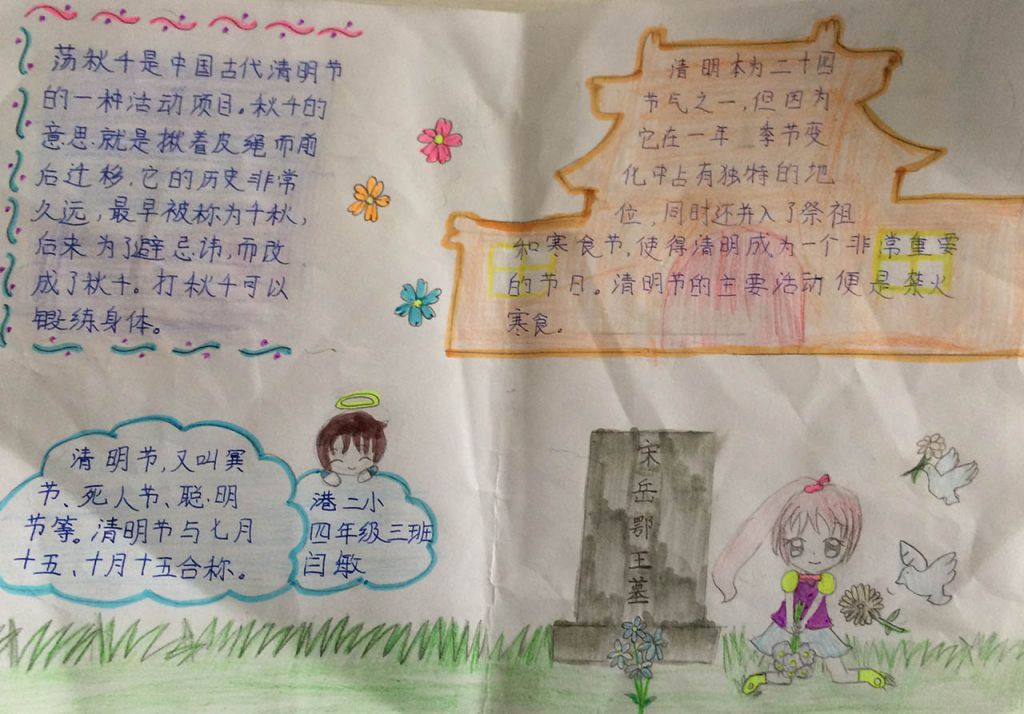 荡秋千是中国古代清明节
的一种活动项目。秋千的
意思就是揪着皮绳而前
后迁移,它的历史非常
久远,最早被称为千秋,
后来为了避忌讳,而改
成了秋千。打秋千可以
锻练身体。
清明本为二十四
节气之一,但因为
它在一年 季节变
化中占有独特的地
位,同时还并入了祭祖
和寒食节,使得清明成为一个非常重要
的节日。清明节的主要活动便是禁火
寒食。
清明节,又叫冥
节、死人节、聪明
节等。清明节与七月
十五、十月十五合称。
港二小
四年级三班
闫敏
宋岳鄂王墓